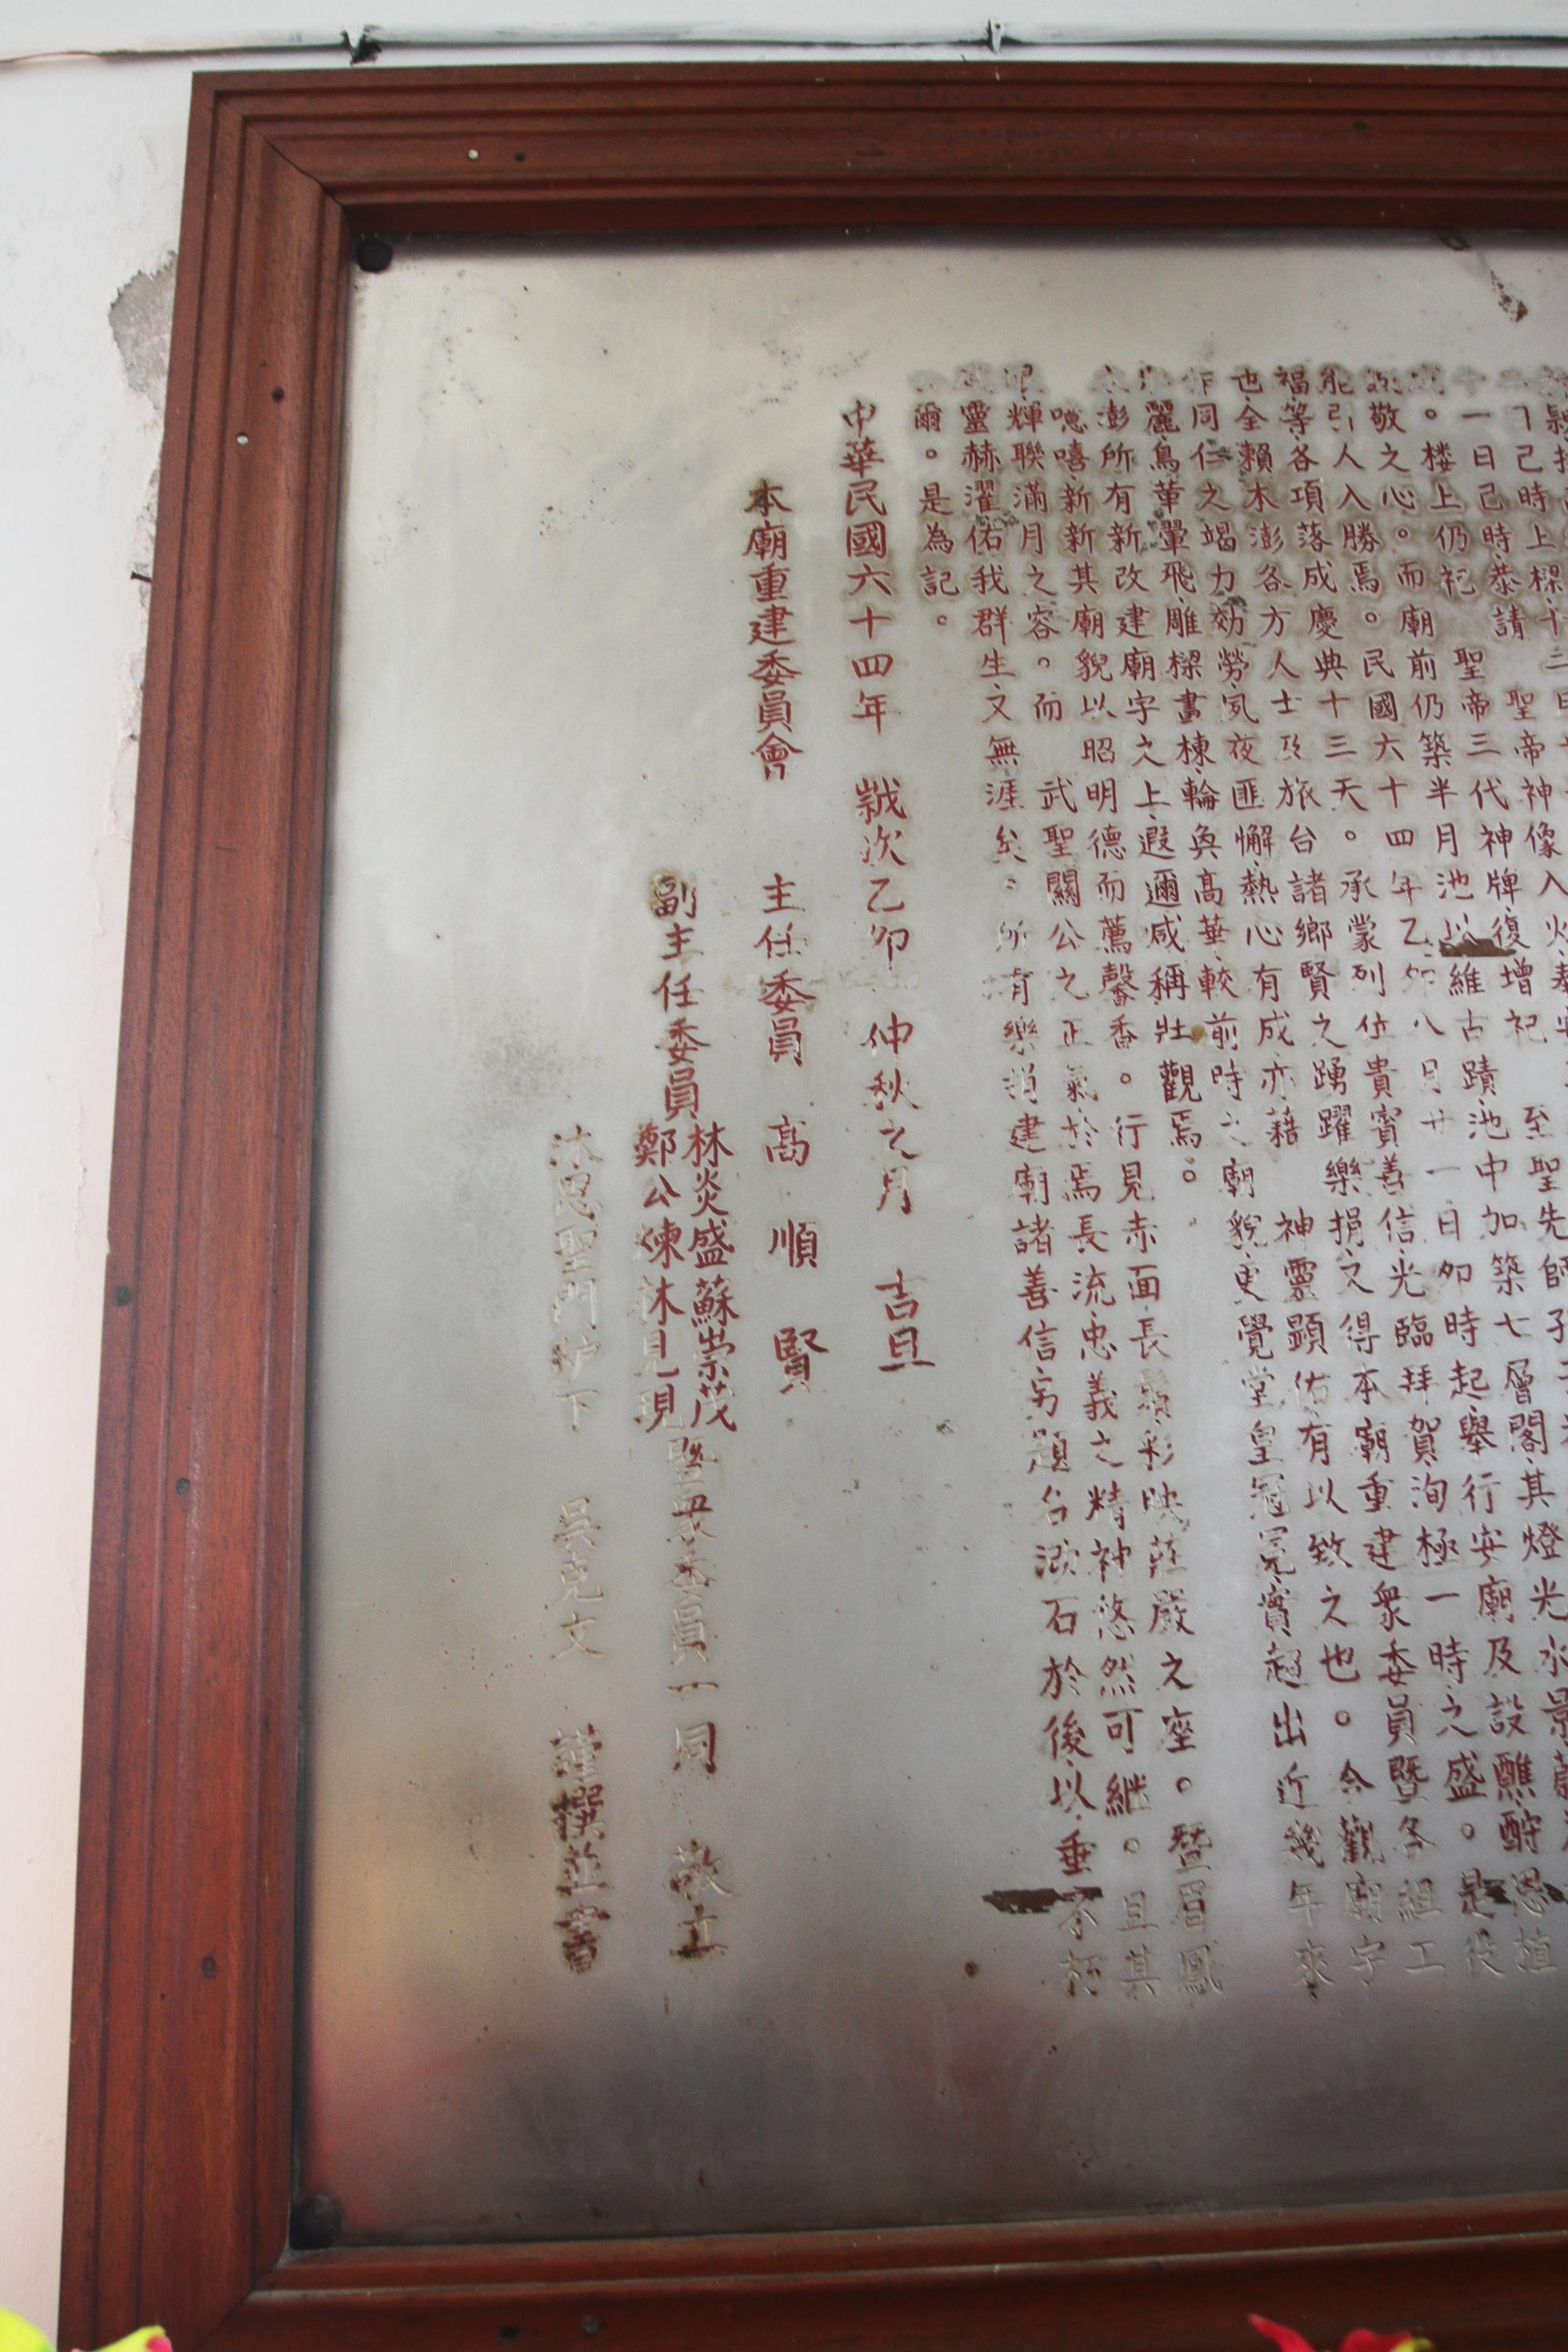 己時上樑十二
一日己時恭請　聖帝神像入火
。楼上仍祀　聖帝三代神牌復增祀　至聖先師孔
敬之心。而廟前仍築半月池以維古蹟池中加築七層閣其燈光水景
能引人入勝焉。民國六十四年乙卯八月廿一日卯時起舉行安廟及設醮酧恩植
福等各項落成慶典十三天。承蒙列位貴賓善信光臨拜賀洵極一時之盛。是役
也全賴木澎各方人士及旅台諸鄉賢之踴躍樂捐又得本廟重建眾委員暨各組工
作同仁之竭力効勞夙夜匪懈熱心有成亦藉　神靈顯佑有以致之也。今觀廟宇
麗鳥革翬飛雕樑畫棟輪奐高華較前時之廟貌更覺堂皇冠冕實超出近幾年來
澎所有新改建廟宇之上遐邇咸稱壯觀焉。
噫嘻新新其廟貌以昭明德而薦馨香。行見赤面長鬚彩映莊嚴之座。暨眉鳳
輝聯滿月之容。而　武聖關公之正氣於焉長流忠義之精神悠然可繼。且其
靈赫濯佑我群生文無涯矣。所有樂捐建廟諸善信另題名泐石於後以垂不朽
爾。是為記。
中華民國六十四年　歲次乙卯　仲秋之月　吉旦
本廟重建委員會　主任委員　高順賢
副主任委員　林炎盛蘇崇茂
鄭公煉林見現暨眾委員一同　敬立
沐恩聖門炉下　吳克文　謹撰並書